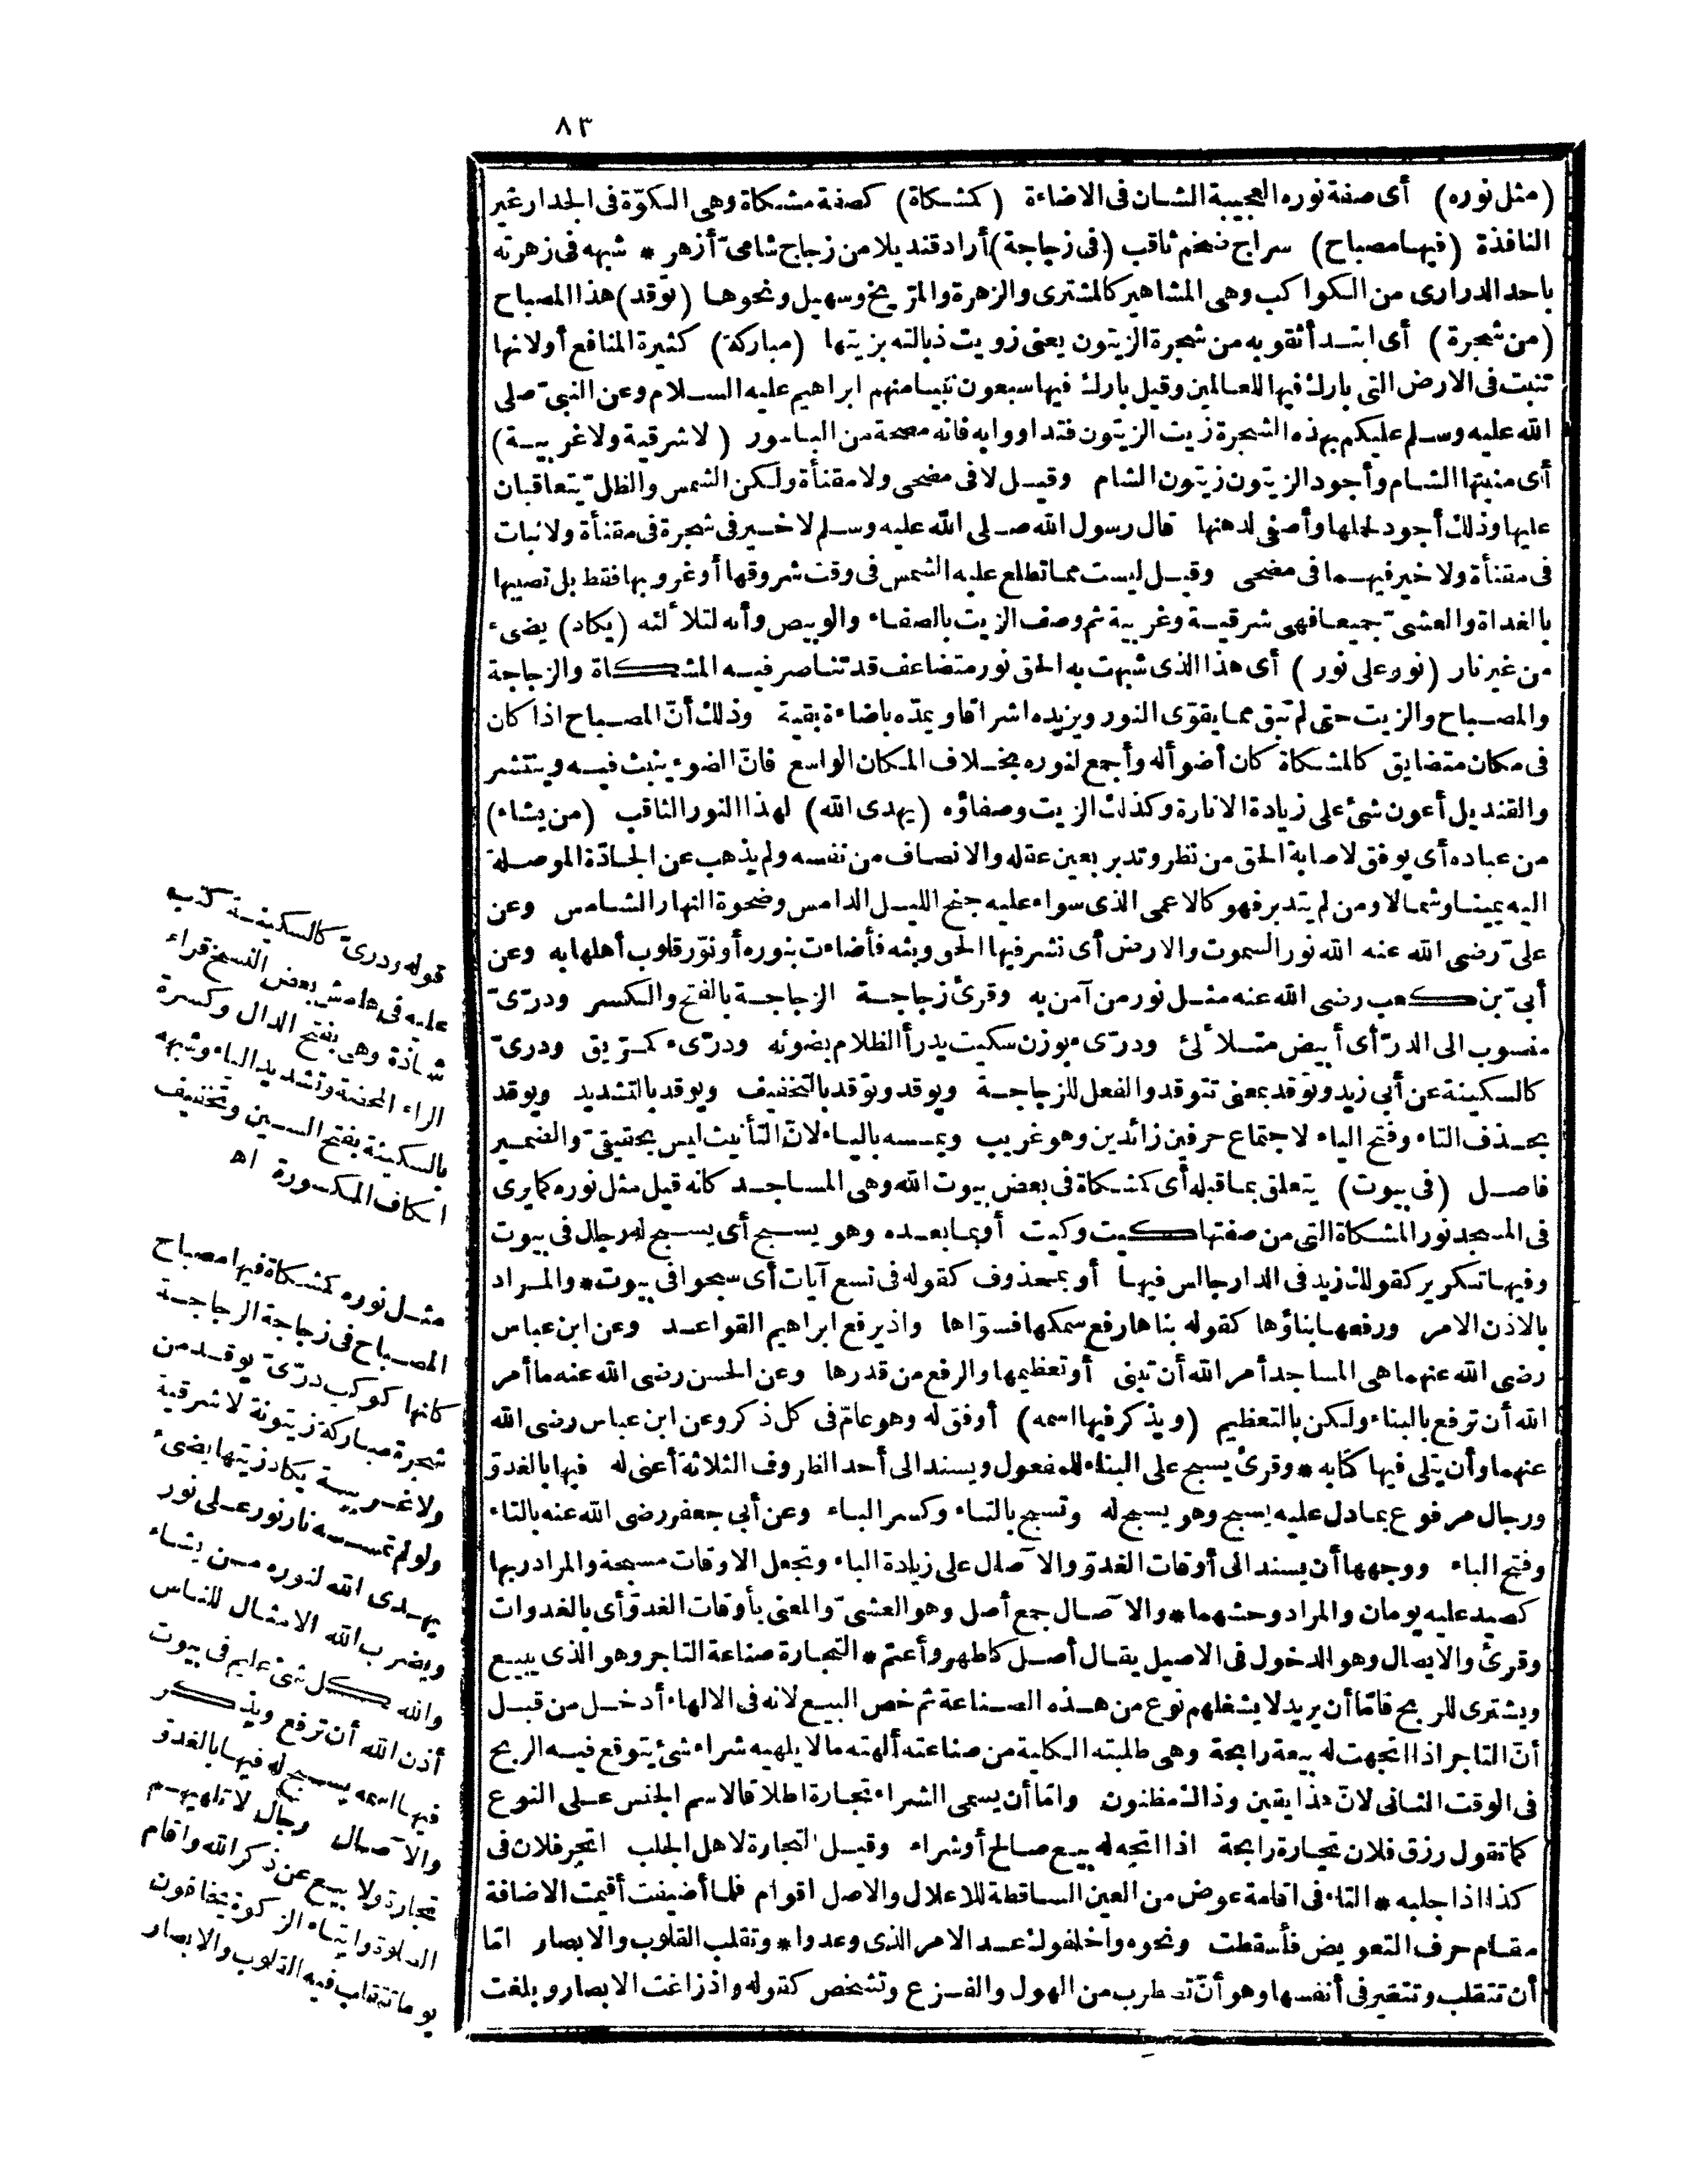 ٨٣
(مثل نوره) أى صفة نوره العجيبة الشان فى الاضاءة (كمشكاة) كصفة مشكاة وهى الكوّة فى الجدار غير
النافذة (فيها مصباح) سراج ضخم ثاقب (فى زجاجة) أراد قنديلا من زجاج شامىّ أزهر * شبهه فى زهرته
باحد الدرارى من الكواكب وهى المشاهير كالمشترى والزهرة والمرّيخ وسهيل ونحوها (توقد) هذا المصباح
(من شجرة) أى ابتدأ ثقوبه من شجرة الزيتون يعنى زويت ذبالته بزيتها (مباركة) كثيرة المنافع أولانها
تنبت فى الارض التى بارك فيها للعالمين وقيل بارك فيها سبعون نبيا منهم ابراهيم عليه السلام وعن النبىّ صلى
الله عليه وسلم عليكم بهذه الشجرة زيت الزيتون فتداووا به فانه مصحة من الباسور (لا شرقية ولا غربية)
أى منبتها الشام وأجود الزيتون زيتون الشام وقيل لا فى مضحى ولا مقنأة ولكن الشمس والظلّ يتعاقبان
عليها وذلك أجود لحملها وأصفى لدهنها قال رسول الله صلى الله عليه وسلم لا خير فى شجرة فى مقنأة ولا نبات
فى مقنأة ولا خير فيهما فى مضحى وقيل ليست مما تطلع عليه الشمس فى وقت شروقها أوغروبها فقط بل تصيبها
بالغداة والعشىّ جميعا فهى شرقية وغربية ثم وصف الزيت بالصفاء والوبيص وأنه لتلألئه (يكاد) يضىء
من غير نار (نور على نور) أى هذا الذى شبهت به الحق نور متضاعف قد تناصر فيه المشكاة والزجاجة
والمصباح والزيت حتى لم تبق مما يقوّى النور ويزيده اشراقا ويمدّه باضاءة بقية وذلك أنّ المصباح اذا كان
فى مكان متضايق كالمشكاة كان أضوأ له وأجمع لنوره بخلاف المكان الواسع فانّ الضوء ينبث فيه وينتشر
والقنديل أعون شئ على زيادة الانارة وكذلك الزيت وصفاؤه (يهدى الله) لهذا النور الثاقب (من يشاء)
من عباده أى يوفق لاصابة الحق من نظر وتدبر بعين عقله والانصاف من نفسه ولم يذهب عن الجادّة الموصلة
اليه يمينا وشمالا ومن لم يتدبر فهو كالاعمى الذى سواء عليه جنح الليل الدامس وضحوة النهار الشامس وعن
علىّ رضى الله عنه الله نور السموت والارض أى نشر فيها الحق وبثه فأضاءت بنوره أو نوّر قلوب أهلها به وعن
أبىّ بن كعب رضى الله عنه مثل نور من آمن به وقرئ زجاجة الزجاجة بالفتح والكسر ودرّىّ
منسوب الى الدرّ أى أبيض متلألئ ودرّىء بوزن سكيت يدرأ الظلام بضوئه ودرّىء كمرّيق ودرىّ
كالسكينة عن أبى زيد وتوقد بمعنى تتوقد والفعل للزجاجة ويوقد وتوقد بالتخفيف ويوقد بالتشديد ويوقد
بحذف التاء وفتح الياء لاجتماع حرفين زائدين وهو غريب ويمسه بالياء لانّ التأنيث ليس بحقيقىّ والضمير
فاصل (فى بيوت) يتعلق بما قبله أى كمشكاة فى بعض بيوت الله وهى المساجد كانه قيل مثل نوره كما يرى
فى المسجد نور المشكاة التى من صفتها كيت وكيت أو بما بعده وهو يسبح أى يسبح له رجال فى بيوت
وفيها تكرير كقولك زيد فى الدار جالس فيها أو بمحذوف كقوله فى تسع آيات أى سبحوا فى بيوت * والمراد
بالاذن الامر ورفعها بناؤها كقوله بناها رفع سمكها فسوّاها واذ يرفع ابراهيم القواعد وعن ابن عباس
رضى الله عنهما هى المساجد أمر الله أن تبنى أو تعظيمها والرفع من قدرها وعن الحسن رضى الله عنه ما أمر
الله أن ترفع بالبناء ولكن بالتعظيم (ويذكر فيها اسمه) أوفق له وهو عامّ فى كل ذكر وعن ابن عباس رضى الله
عنهما وأن يتلى فيها كتابه * وقرئ يسبح على البناء للمفعول ويسند الى أحد الظروف الثلاثة أعنى له فيها بالغدوّ
ورجال مرفوع بما دل عليه يسبح وهو يسبح له وتسبح بالتاء وكسر الباء وعن أبى جعفر رضى الله عنه بالتاء
وفتح الباء ووجهها أن يسند الى أوقات الغدوّ والآصال على زيادة الباء وتجعل الاوقات مسبحة والمراد ربها
كصيد عليه يومان والمراد وحشهما * والآصال جمع أصل وهو العشىّ والمعنى بأوقات الغدوّ أى بالغدوات
وقرئ والايصال وهو الدخول فى الاصيل يقال أصل كاظهر وأعتم * التجارة صناعة التاجر وهو الذى يبيع
ويشترى للربح فامّا أن يريد لا يشغلهم نوع من هذه الصناعة ثم خص البيع لانه فى الالهاء أدخل من قبل
أنّ التاجر اذا اتجهت له بيعة رابحة وهى طلبته الكلية من صناعته ألهته ما لا يلهيه شراء شئ يتوقع فيه الربح
فى الوقت الثانى لانّ هذا يقين وذاك مظنون وامّا أن يسمى الشراء تجارة اطلاقا لاسم الجنس على النوع
كما تقول رزق فلان تجارة رابحة اذا اتجه له بيع صالح أو شراء وقيل التجارة لاهل الجلب اتجر فلان فى
كذا اذا جلبه * التاء فى اقامة عوض من العين الساقطة للاعلال والاصل اقوام فلما أضيفت أقيمت الاضافة
مقام حرف التعويض فأسقطت ونحوه واخلفوك عد الامر الذى وعدوا * وتقلب القلوب والابصار امّا
أن تتقلب وتتغير فى أنفسها وهو أنّ تضطرب من الهول والفزع وتشخص كقوله واذ زاغت الابصار وبلغت
قوله ودرىّ كالسكينة كتب
عليه فى هامش بعض النسخ قراء
شاذة وهى بفتح الدال وكسرة
الراء الخفيفة وتشديد الياء وشبهه
بالسكينة بفتح السين وتخفيف
الكاف المكسورة اه
مثل نوره كمشكاة فيها مصباح
المصباح فى زجاجة الزجاجة
كانها كوكب درّىّ يوقد من
شجرة مباركة زيتونة لا شرقية
ولا غربية يكاد زيتها يضىء
ولو لم تمسسه نار نور على نور
يهدى الله لنوره من يشاء
ويضرب الله الامثال للناس
والله بكل شئ عليم فى بيوت
أذن الله أن ترفع ويذكر
فيها اسمه يسبح له فيها بالغدوّ
والآصال رجال لا تلهيهم
تجارة ولا بيع عن ذكر الله واقام
الصلوة وايتاء الزكوة يخافون
يوما تتقلب فيه القلوب والابصار